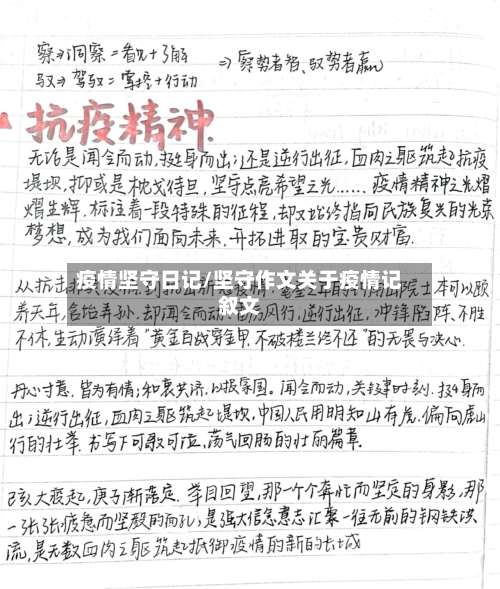 察⇒洞察=看见+了解
⇒察势者智、驭势者赢
驭⇒驾驭=掌控+行动
抗疫精神
无论是闻令而动,挺身而出;还是逆行出征,血肉之躯筑起抗疫
堤坝,抑或是枕戈待旦,坚守点亮希望之光……疫情精神之光熠
熠生辉,标注着一段特殊的征程,却又始终指向民族复兴的光荣
梦想,成为我们面向未来、开拓进取的宝贵财富.
疫情坚守日记/坚守作文关于疫情记
叙文
从抗击 院士本可以颐
养天年,含饴弄孙.却闻令而动 风行,逆行出征,冲锋陷阵,不胜
不休,生动演绎着"黄金百战穿金甲,不破楼兰终不还"的无畏与决心.
丹心寸意,皆为有情;和衷共济,以报家国。闻令而动,关键时刻.挺身而
出;逆行出征,血肉之躯筑起堤坝,中国人民用明知山有虎.偏向虎山
行的壮举.书写下可歌可泣,荡气回肠的壮丽篇章.
大疫起,庚子渐落定.举目回望,那一个个奔忙而坚定的身影,那
一张张疲惫而坚毅的面孔,是强大信念意志汇聚一往无前的钢铁洪
流,是无数血肉之躯筑起抵御疫情的新的长城